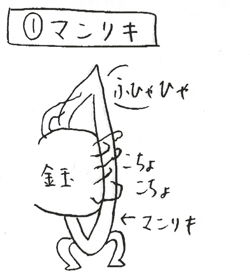 ①マンリキ
ふひゃひゃ
こちょ
こちょ
金玉
←マンリキ